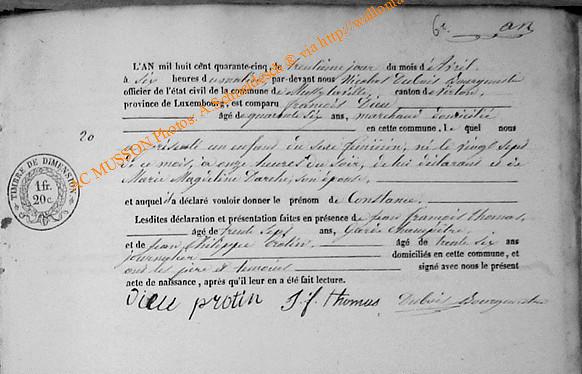 6e an
L'AN mil huit cent quarante-cinq, le trentième jour du mois d'Avril
à Six heures du matin par-devant nous Nicolas Dubois Bourgmestre
officier de l'état civil de la commune de Mussy la ville, canton de Virton,
province de Luxembourg, est comparu françois Dieu
âgé de quarante six ans, marchand domicilié
20 en cette commune, lequel nous
a présenté un enfant du Sexe féminin, né le vingt Sept
de ce mois, à onze heures du Soir, de lui déclarant et de
Marie Magdeleine Darche, son épouse,
et auquel il a déclaré vouloir donner le prénom de Constance.
Lesdites déclaration et présentation faites en présence de jean françois thomas,
âgé de trente Sept ans, Garde champêtre,
et de jean Philippe Protin âgé de trente six ans
journalier domiciliés en cette commune, et
ont les père et temoins signé avec nous le présent
acte de naissance, après qu'il leur en a été fait lecture.
Dieu protin J. f thomas Dubois Bourgmestre
TIMBRE DE DIMENSION
1 fr.
20 c.
MUSSON Photos: A. Schmickrath ® via http://wallonia